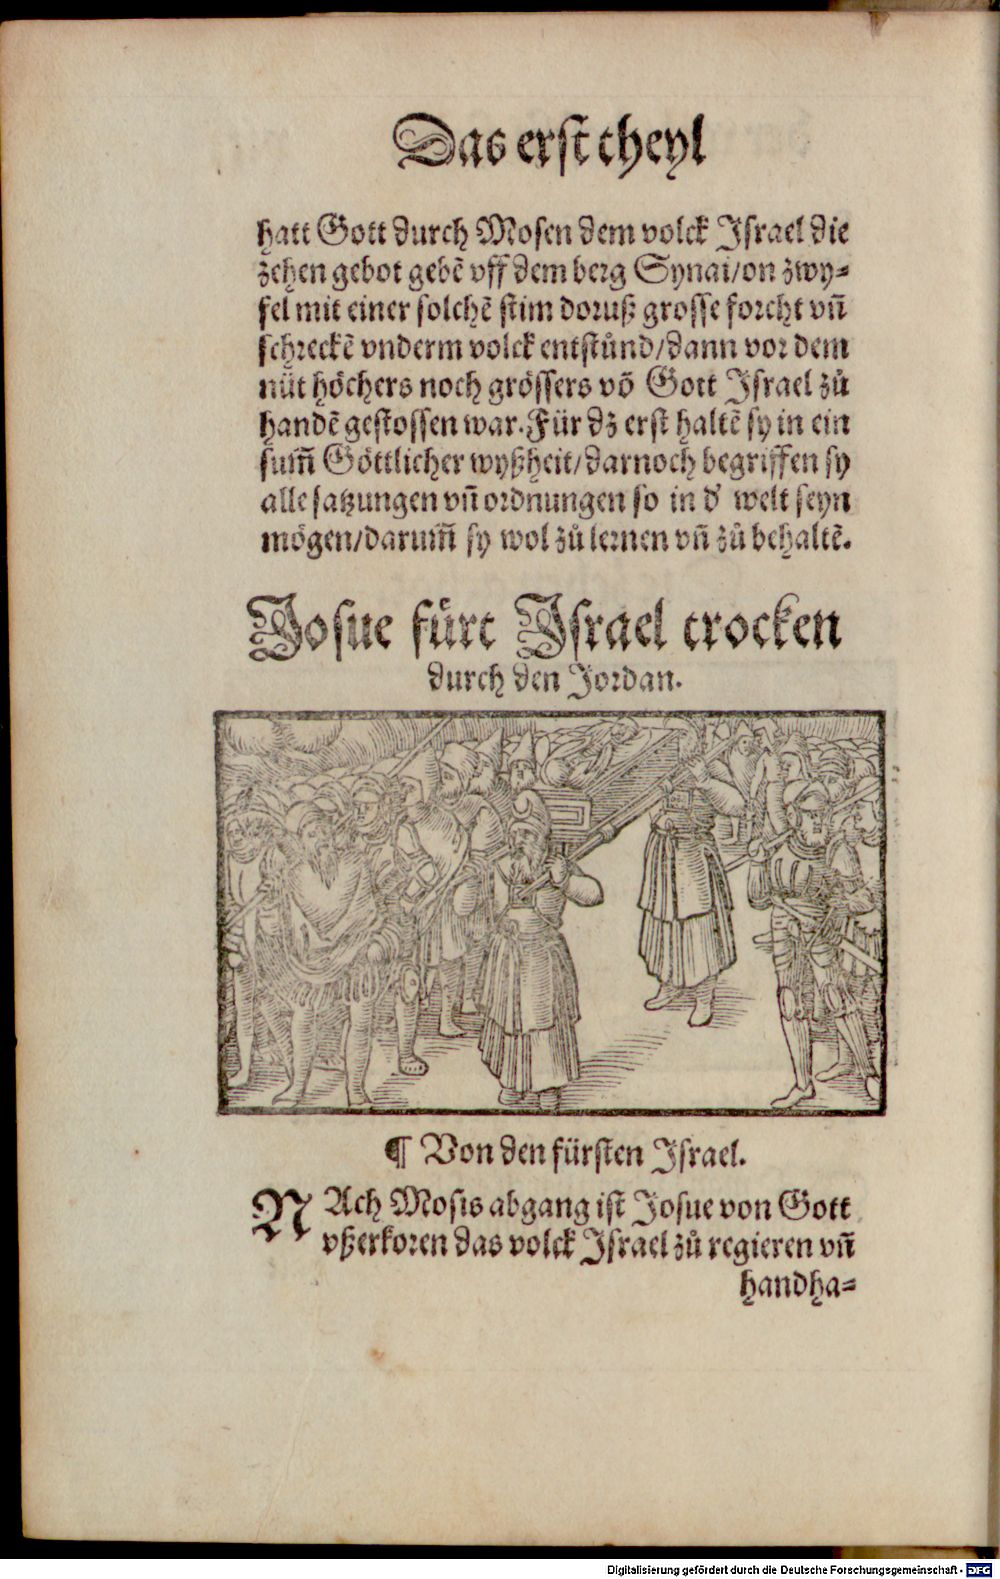 Das erst theyl
hatt Gott durch Mosen dem volck Israel die
zehen gebot gebē vff dem berg Synai/on zwy⸗
fel mit einer solchē stim doruß grosse forcht vñ
schreckē vnderm volck entstůnd/dann vor dem
nüt höchers noch grössers vō Gott Israel zů
handē gestossen war. Für dz erst haltē sy in ein
sum̄ Göttlicher wyßheit/darnoch begriffen sy
alle satzungen vñ ordnungen so in d' welt seyn
mögen/darum̄ sy wol zů lernen vñ zů behaltē.
Josue fürt Israel trocken
durch den Jordan.
¶ Von den fürsten Israel.
NAch Mosis abgang ist Josue von Gott
vßerkoren das volck Israel zů regieren vñ
handha⸗
Digitalisierung gefördert durch die Deutsche Forschungsgemeinschaft - DFG